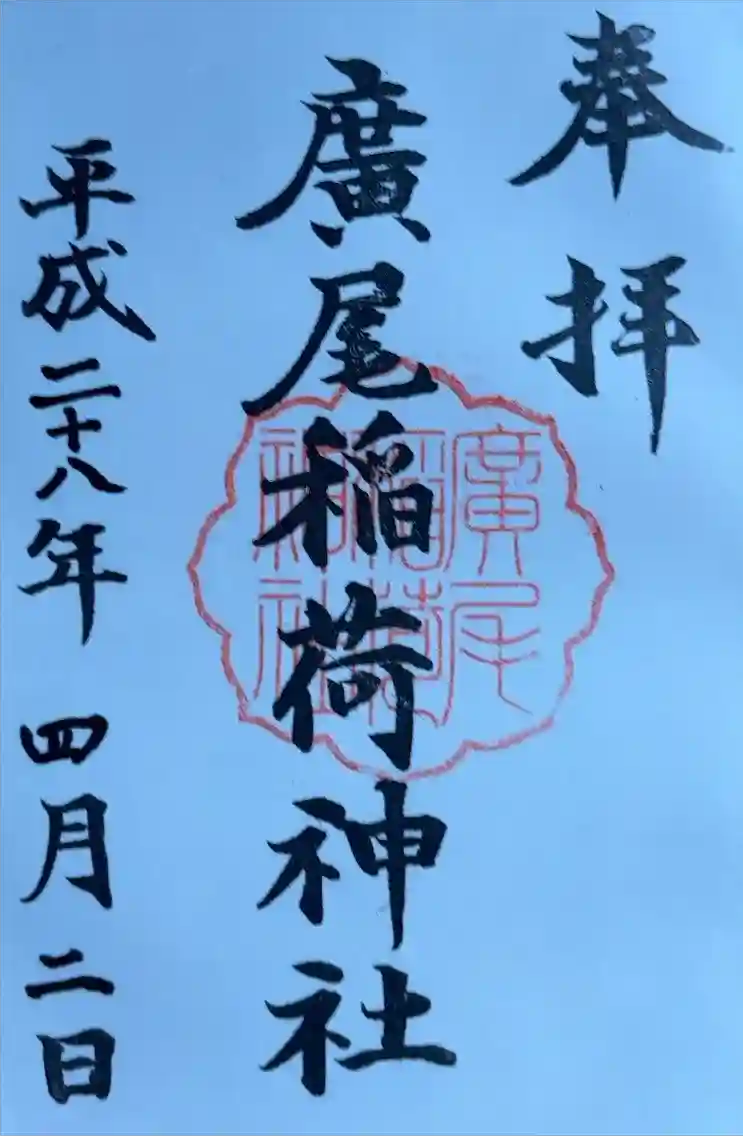 奉拝
廣尾稲荷神社
廣尾
稲荷
神社
平成二十八年 四月二日